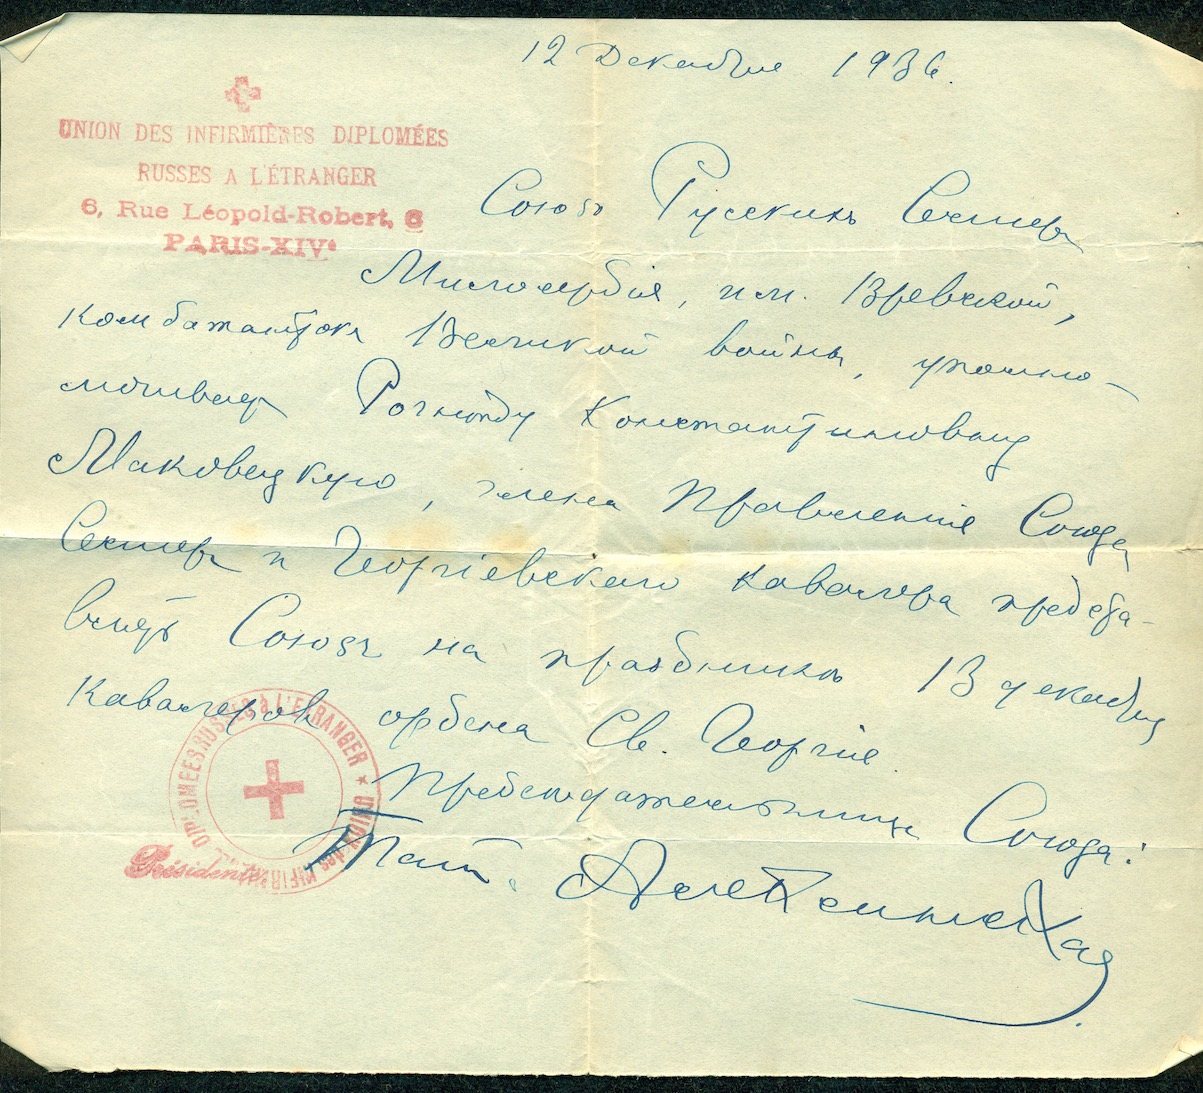 12 Декабря 1936.
UNION DES INFIRMIÈRES DIPLOMÉES
RUSSES A L'ÉTRANGER
6, Rue Léopold-Robert, 6
PARIS-XIVe
Союзъ Русскихъ Сестеръ
Милосердія, им. Вревской,
комбатантокъ Великой войны, уполно-
мочиваетъ Рогнѣду Константиновну
Маковецкую, члена Правленія Союза
Сестеръ и Георгіевскаго кавалера предста-
влять Союзъ на праздникѣ 13 декабря
Кавалеровъ ордена Св. Георгія.
Предсѣдательница Союза:
UNION des INFIRMIÈRES DIPLOMÉES RUSSES À L'ÉTRANGER
Présidente
Тат. Алексинская